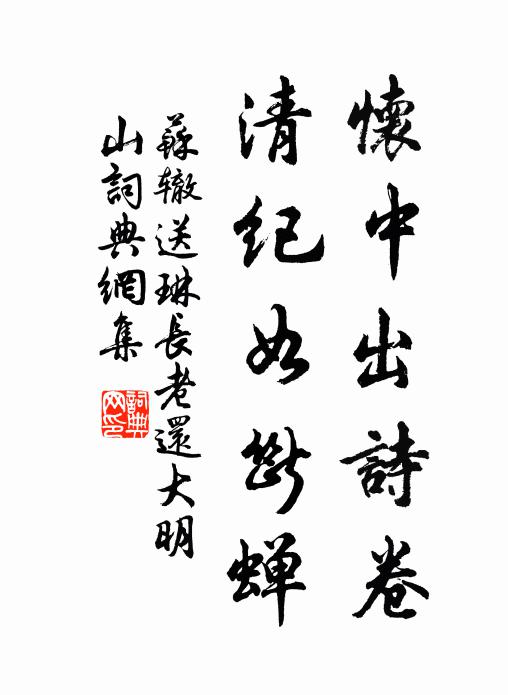 懷中出詩卷
清紀如斷蝉
蘇辙送琳長老還大明
山詞典網集
詞典
网印